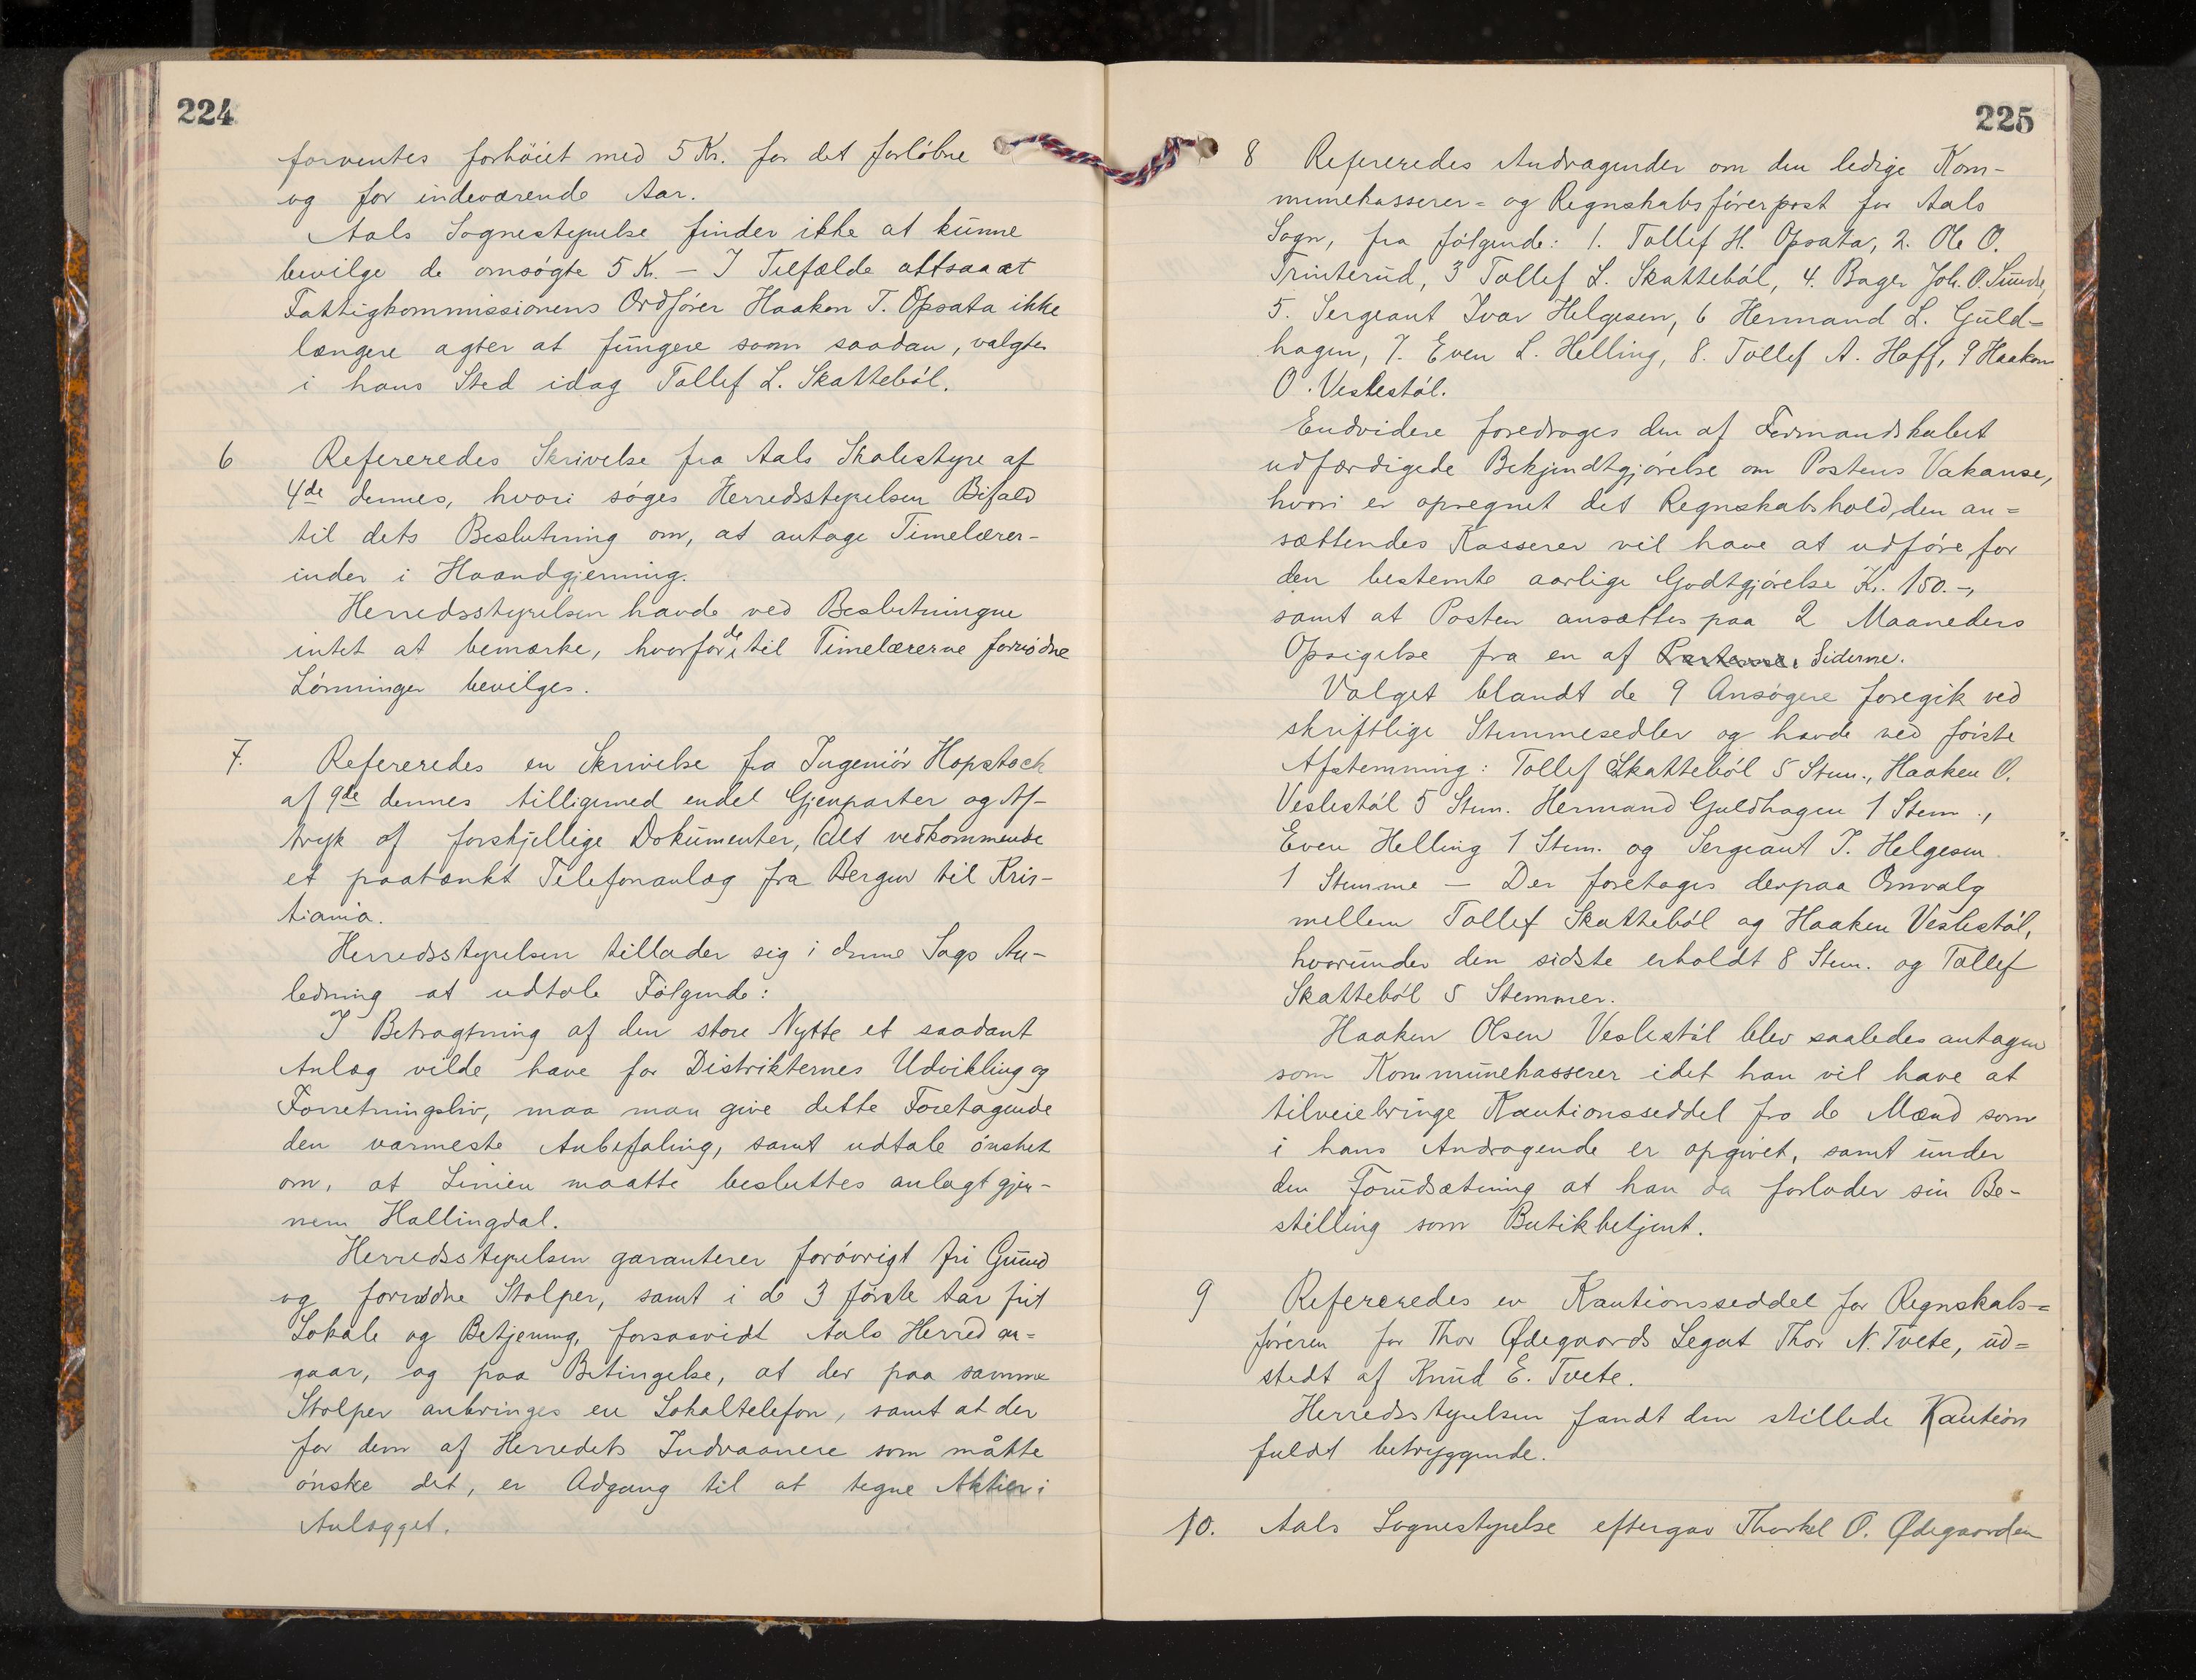 224
forventes forhöiet med 5 Kr. for det forløbne
og for indeværende Aar.
Aals Sognestyrelse finder ikke at kunne
bevilge de omsøgte 5 Kr. – I Tilfælde altsaa at
Fattigkommissionens Ordfører Haakon T. Opsata ikke
længere agter at fungere som saadan, valgtes
i hans Sted idag Tollef L. Skattebøl.
6 Refereredes Skrivelse fra Aals Skolestyre af
4de dennes, hvori søges Herredsstyrelsen Bifald
til dets Beslutning om, at antage Timelærer-
inder i Haandgjerning.
Herredsstyrelsen havde ved Beslutningne
intet at bemærke, hvorfor de til Timelærerne fornødne
Lønninger bevilges.
7. Refereredes en Skrivelse fra Ingeniør Hopstock
af 9de dennes tilligemed endel Gjenparter og Af-
tryk af forskjellige Dokumenter, Alt vedkommende
et paatænkt Telefonanlæg fra Bergen til Kris-
tiania.
Herredsstyrelsen tillader sig i denne Sags An-
ledning at udtale Følgende:
I Betragtning af den store Nytte et saadant
Anlæg vilde have for Distrikternes Udvikling og
Forretningsliv, maa man give dette Foretagende
den varmeste Anbefaling, samt udtale ønsket
om, at Linien maatte besluttes anlagt gjen-
nem Hallingdal.
Herredsstyrelsen garanterer forøvrigt fri Grund
og fornødne Stolper, samt i de 3 første Aar frit
Lokale og Betjening, forsaavidt Aals Herred an=
gaar, og paa Betingelse, at der paa samme
Stolper anbringes en Lokaltelefon, samt at der
for dem af Herredets Indvaanere som måtte
ønske det, er Adgang til at tegne Aktier i
Anlægget.
225
8 Refereredes Andragender om den ledige Kom-
munekasserer= og Regnskabsførerpost for Aals
Sogn, fra følgende: 1. Tollef H. Opsata, 2. Ole O.
Trinterud, 3 Tollef L. Skattebøl, 4. Bager Joh. O. Sunde,
5. Sergeant Ivar Helgesen, 6 Hermand L. Guld=
hagen, 7. Even L. Helling, 8. Tollef A. Hoff, 9 Haakon
O. Veslestøl.
Endvidere foredroges den af Formandskabet
udfærdigede Bekjendtgjørelse om Postens Vakanse,
hvori er opregnet det Regnskabshold, den an=
sættendes Kasserer vil have at udføre for
den bestemte aarlige Godtgjørelse Kr. 150.–,
samt at Posten ansættes paa 2 Maaneders
Opsigelse fra en af Parterne Siderne.
Valget blandt de 9 Ansøgere foregik ved
skriftlige Stemmesedler og havde ved første
Afstemning: Tollef Skattebøl 5 Stem., Haaken O.
Veslestøl 5 Stem. Hermand Guldhagen 1 Stem.,
Even Helling 1 Stem. og Sergeant I. Helgesen
1 Stemme – Der foretages derpaa Omvalg
mellem Tollef Skattebøl og Haaken Veslestøl,
hvorunder den sidste erholdt 8 Stem. og Tollef
Skattebøl 5 Stemmer.
Haaken Olsen Veslestøl blev saaledes antagen
som Kommunekasserer idet han vil have at
tilveiebringe Kautionsseddel fra de Mænd som
i hans Andragende er opgivet, samt under
den Forudsætning at han da forlader sin Be-
stilling som Butikbetjent.
9 Refereredes en Kautionsseddel for Regnskabs=
føreren for Thor Ødegaards Legat Thor N. Tvete, ud=
stedt af Knud E. Tvete.
Herredsstyrelsen fandt den stillede Kaution
fuldt betryggende.
10. Aals Sognestyrelse eftergav Thorkel O. Ødegaarden